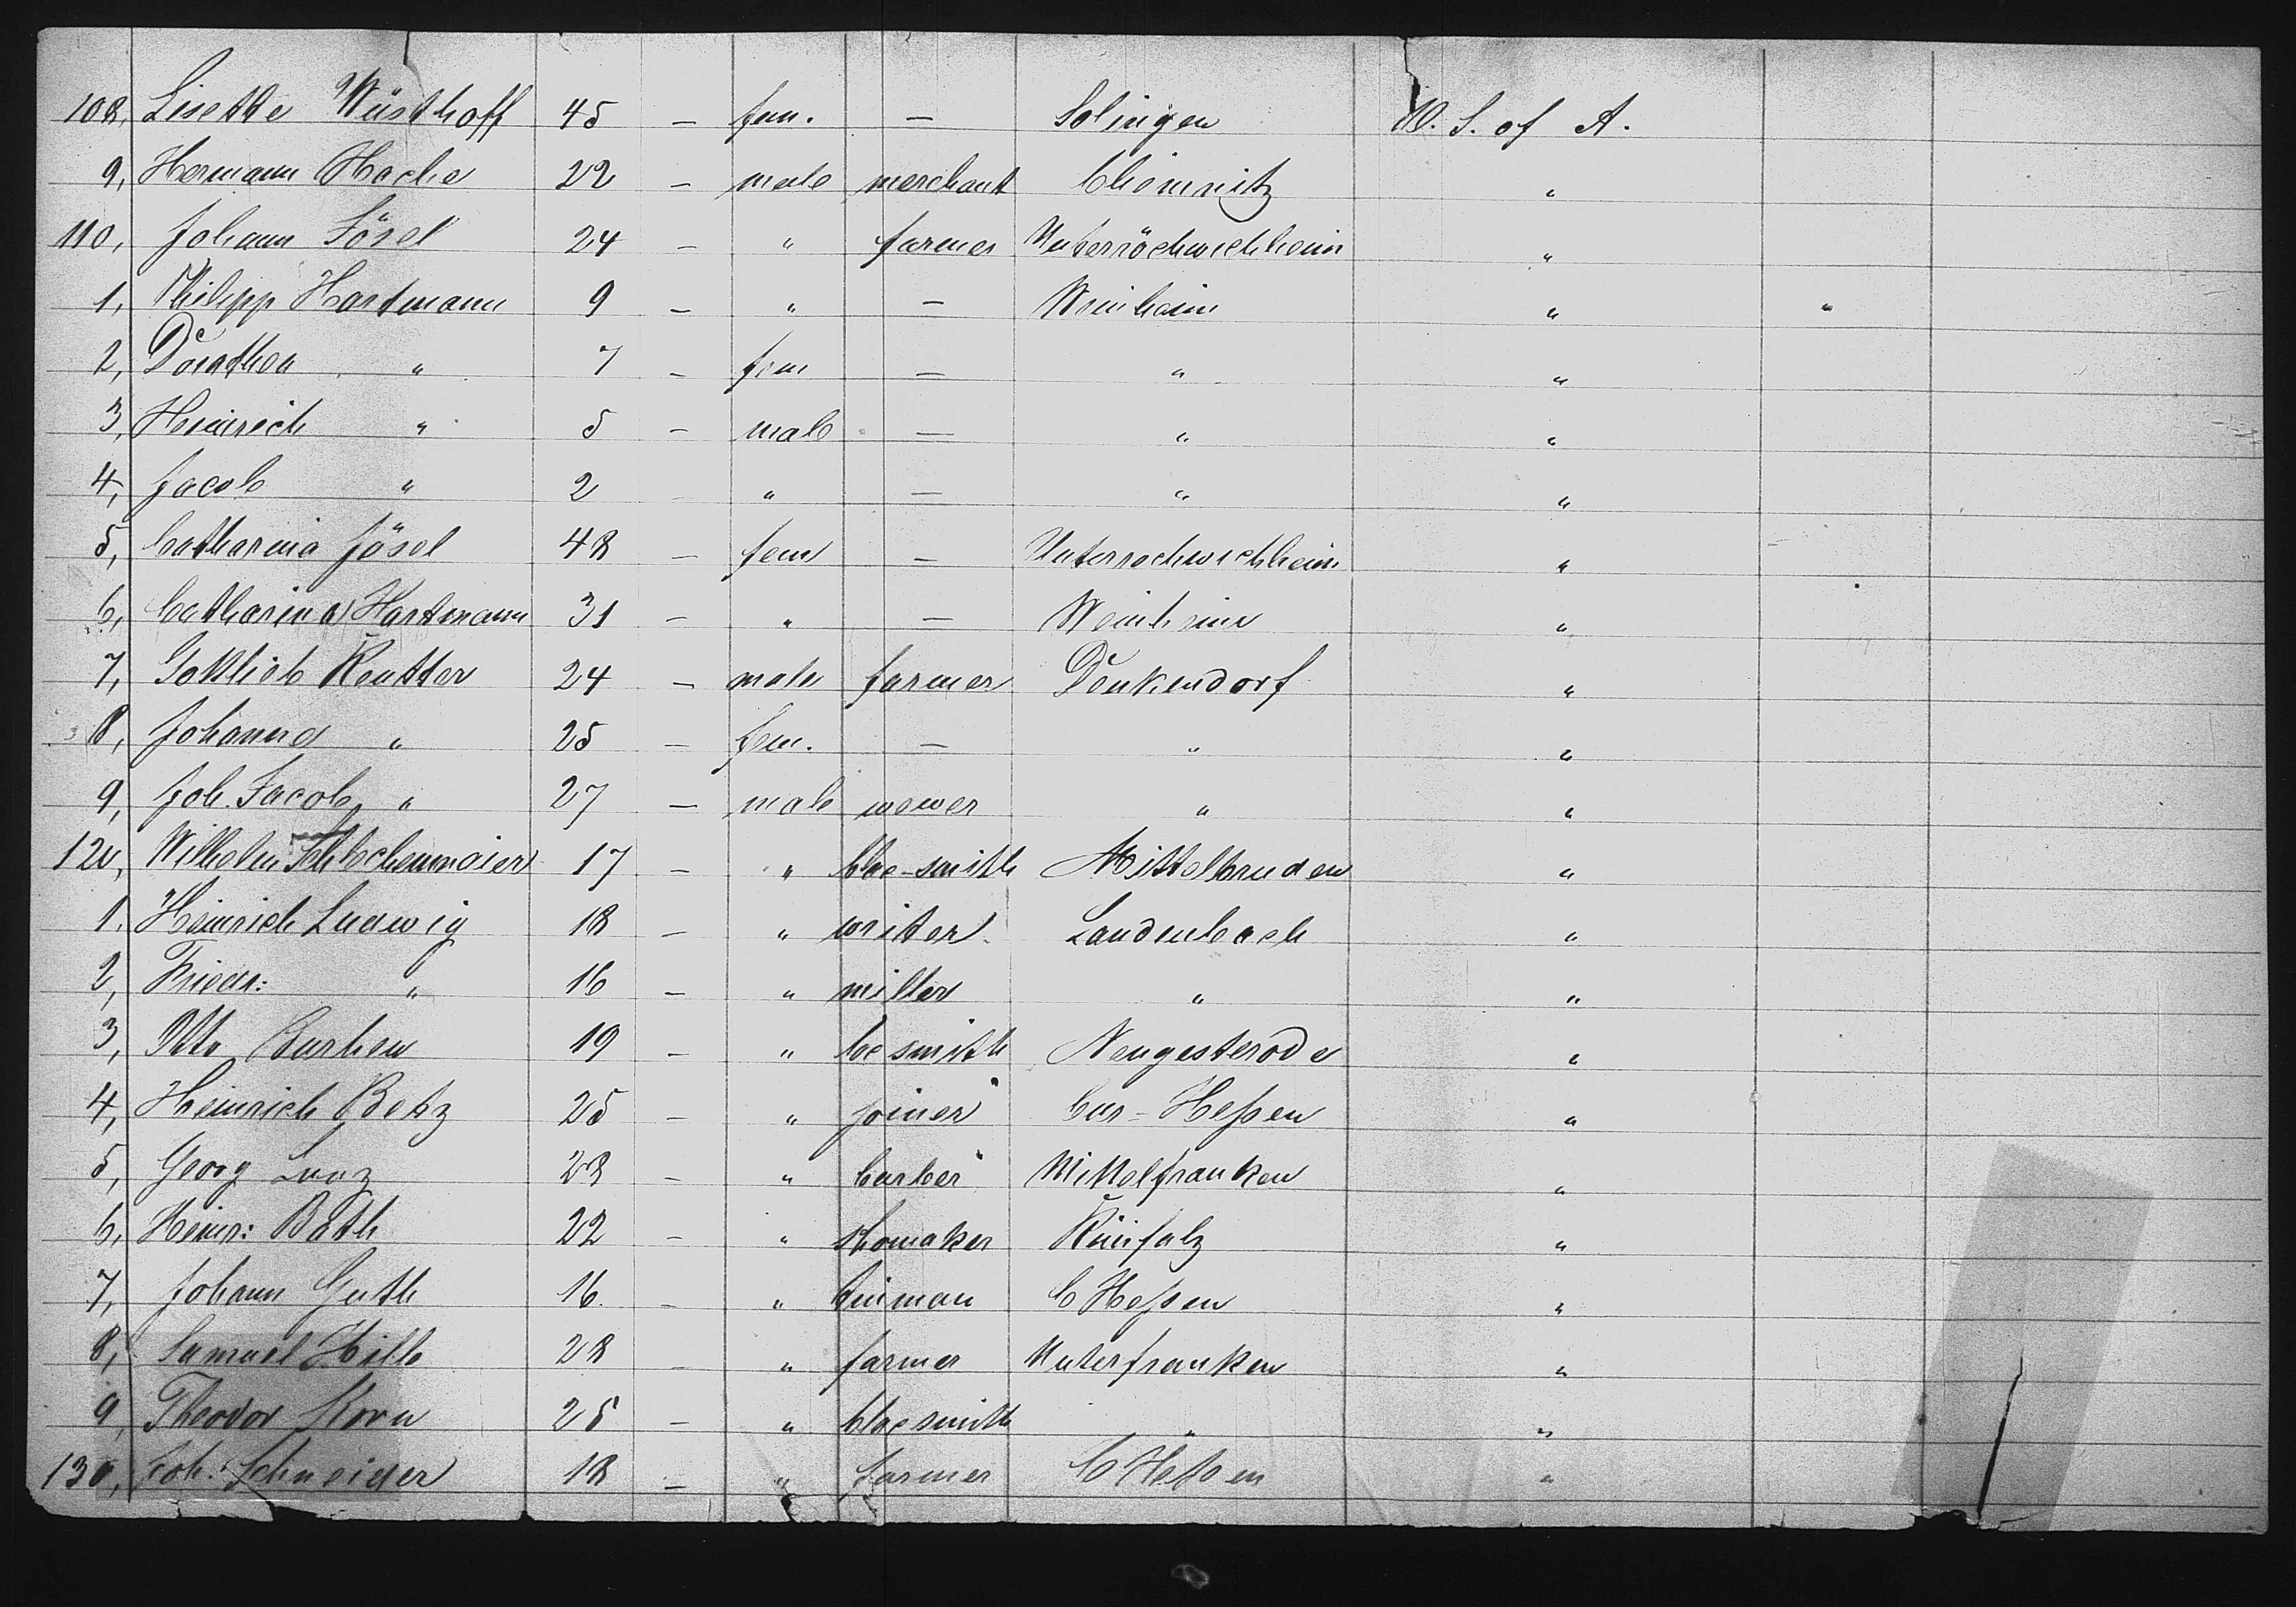 108, Lisette Wüsthoff 45 – fem. – Solingen U. S. of A.
9, Hermann Hache 22 – male merchant Chemnitz "
110, Johann Jösel 24 – " farmer "
1, Philipp Hartmann 9 – " – Weinheim "
2, Dorothea " 7 – fem – " "
3, Heinrich " 5 – male – " "
4, Jacob " 2 – " – " "
5, Catharina Jösel 48 – fem – "
6, Catharina Hartmann 31 – " – Weinheim "
7, Gottlieb Reutter 24 – male farmer Denkendorf "
8, Johanna " 25 – fem. – " "
9, Joh. Jacob " 27 – male wewer " "
120, Wilhelm 17 – " blac-smith Mittelbruden "
1. Heinrich Ludwig 18 – " writer Laudenbach "
2, Friedr: " 16 – " miller " "
3, Otto 19 – " smith "
4, Heinrich Betz 25 – " joiner Cur-Heßen "
5, Georg 28 – " barber Mittelfranken "
6, Heinr: Bath 22 – " shomaker "
7, Johann Guth 16 – " tinman C Heßen "
8, Samuel Hille 28 – " farmer Unterfranken "
9, Theodor Korn 25 – " blacsmith " "
130, Joh. Schneider 18 – " farmer C Heßen "